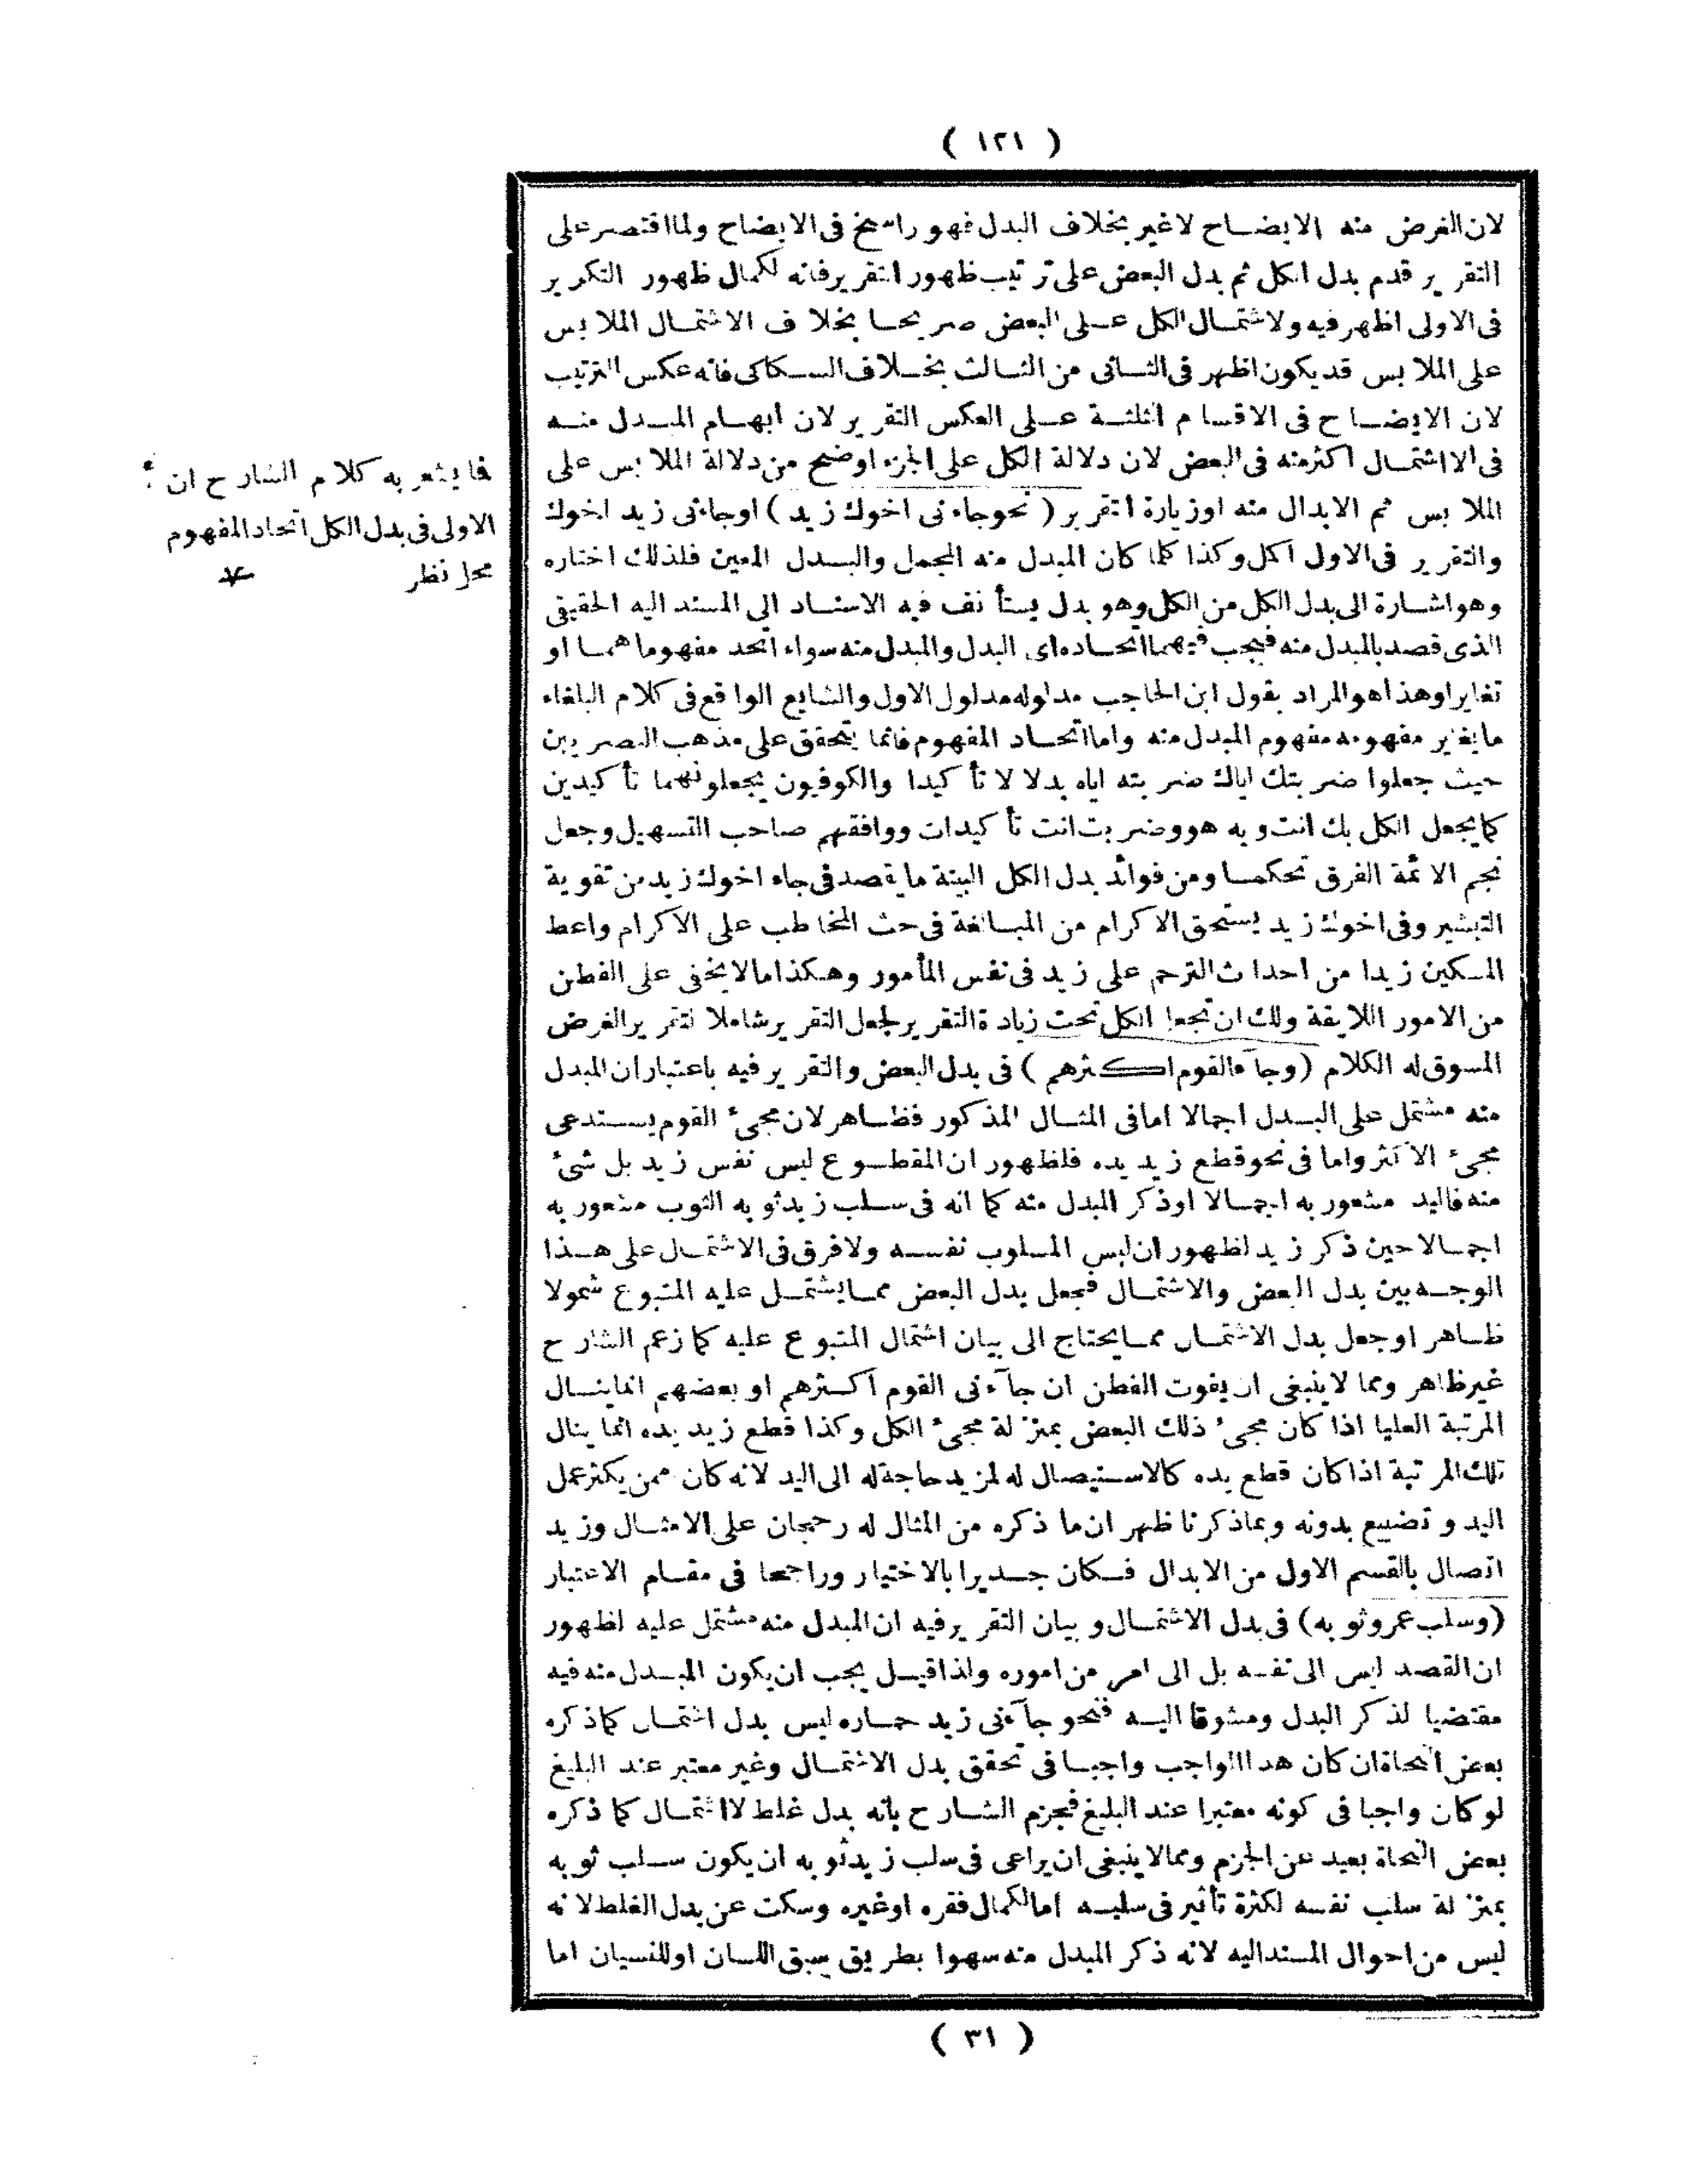 ( ١٢١ )
لان الغرض منه الايضاح لاغير بخلاف البدل فهو راسخ فى الايضاح ولما اقتصر على
التقرير قدم بدل الكل ثم بدل البعض على ترتيب ظهور التقرير فانه لكمال ظهور التكرير
فى الاولى اظهر فيه ولاشتمال الكل على البعض صريحا بخلاف الاشتمال الملابس
على الملابس قد يكون اظهر فى الثانى من الثالث بخلاف السكاكى فانه عكس الترتيب
لان الايضاح فى الاقسام الثلثة على العكس التقرير لان ابهام المبدل منه
فى الاشتمال اكثر منه فى البعض لان دلالة الكل على الجزء اوضح من دلالة الملابس على
الملابس ثم الابدال منه اوزيارة التقرير ( نحو جاءنى اخوك زيد ) اوجاءنى زيد اخوك
والتقرير فى الاول اكمل وكذا كلما كان المبدل منه المجمل والبدل المعين فلذلك اختاره
وهو اشارة الى بدل الكل من الكل وهو بدل يستأنف فيه الاسناد الى المسند اليه الحقيقى
الذى قصد بالمبدل منه فيجب فيهما اتحاده اى البدل والمبدل منه سواء اتحد مفهوماهما او
تغايرا وهذا هو المراد بقول ابن الحاجب مدلوله مدلول الاول والشايع الواقع فى كلام البلغاء
مايغاير مفهومه مفهوم المبدل منه واما اتحاد المفهوم فانما يتحقق على مذهب البصريين
حيث جعلوا ضربتك اياك ضربته اياه بدلا لا تأكيدا والكوفيون يجعلونهما تأكيدين
كما يجعل الكل بك انت وبه هو وضربت انت تأكيدات ووافقهم صاحب التسهيل وجعل
نجم الائمة الفرق تحكما ومن فوائد بدل الكل البينة مايقصد فى جاء اخوك زيد من تقوية
التبشير وفى اخوك زيد يستحق الاكرام من المبالغة فى حث المخاطب على الاكرام واعط
المسكين زيدا من احداث الترحم على زيد فى نفس المأمور وهكذا مالايخفى على الفطن
من الامور اللايقة ولك ان تجعل الكل تحت زيادة التقرير لجعل التقرير شاملا لتقرير الغرض
المسوق له الكلام ( وجآء القوم اكثرهم ) فى بدل البعض والتقرير فيه باعتبار ان المبدل
منه مشتمل على البدل اجمالا اما فى المثال المذكور فظاهر لان مجىء القوم يستدعى
مجىء الاكثر واما فى نحو قطع زيد يده فلظهور ان المقطوع ليس نفس زيد بل شىء
منه فاليد مشعور به اجمالا اوذكر المبدل منه كما انه فى سلب زيد ثوبه الثوب مشعور به
اجمالا حين ذكر زيد لظهور ان ليس المسلوب نفسه ولافرق فى الاشتمال على هذا
الوجه بين بدل البعض والاشتمال فجعل بدل البعض مما يشتمل عليه المتبوع شمولا
ظاهر او جعل بدل الاشتمال مما يحتاج الى بيان اشتمال المتبوع عليه كما زعم الشارح
غير ظاهر ومما لاينبغى ان يفوت الفطن ان جآءنى القوم اكثرهم او بعضهم انما ينال
المرتبة العليا اذا كان مجىء ذلك البعض بمنزلة مجىء الكل وكذا قطع زيد يده انما ينال
تلك المرتبة اذا كان قطع يده كالاستيصال له لمزيد حاجة له الى اليد لانه كان ممن يكثر عمل
اليد و تضييع بدونه وبماذكرنا ظهر ان ما ذكره من المثال له رجحان على الامثال وزيد
اتصال بالقسم الاول من الابدال فكان جديرا بالاختيار وراجحا فى مقام الاعتبار
(وسلب عمرو ثوبه) فى بدل الاشتمال و بيان التقرير فيه ان المبدل منه مشتمل عليه لظهور
ان القصد ليس الى نفسه بل الى امر من اموره ولذا قيل يجب ان يكون المبدل منه فيه
مقتضيا لذكر البدل ومشوقا اليه فنحو جآءنى زيد حماره ليس بدل اشتمال كما ذكره
بعض النحاة ان كان هذا الواجب واجبا فى تحقق بدل الاشتمال وغير معتبر عند البليغ
لوكان واجبا فى كونه معتبرا عند البليغ فجزم الشارح بانه بدل غلط لااشتمال كما ذكره
بعض النحاة بعيد عن الجزم ومما لاينبغى ان يراعى فى سلب زيد ثوبه ان يكون سلب ثوبه
بمنزلة سلب نفسه لكثرة تأثير فى سلبه اما لكمال فقره اوغيره وسكت عن بدل الغلط لانه
ليس من احوال المسند اليه لانه ذكر المبدل منه سهوا بطريق سبق اللسان او للنسيان اما
فما يشعر به كلام الشارح ان
الاولى فى بدل الكل اتحاد المفهوم
محل نظر
( ٣١ )